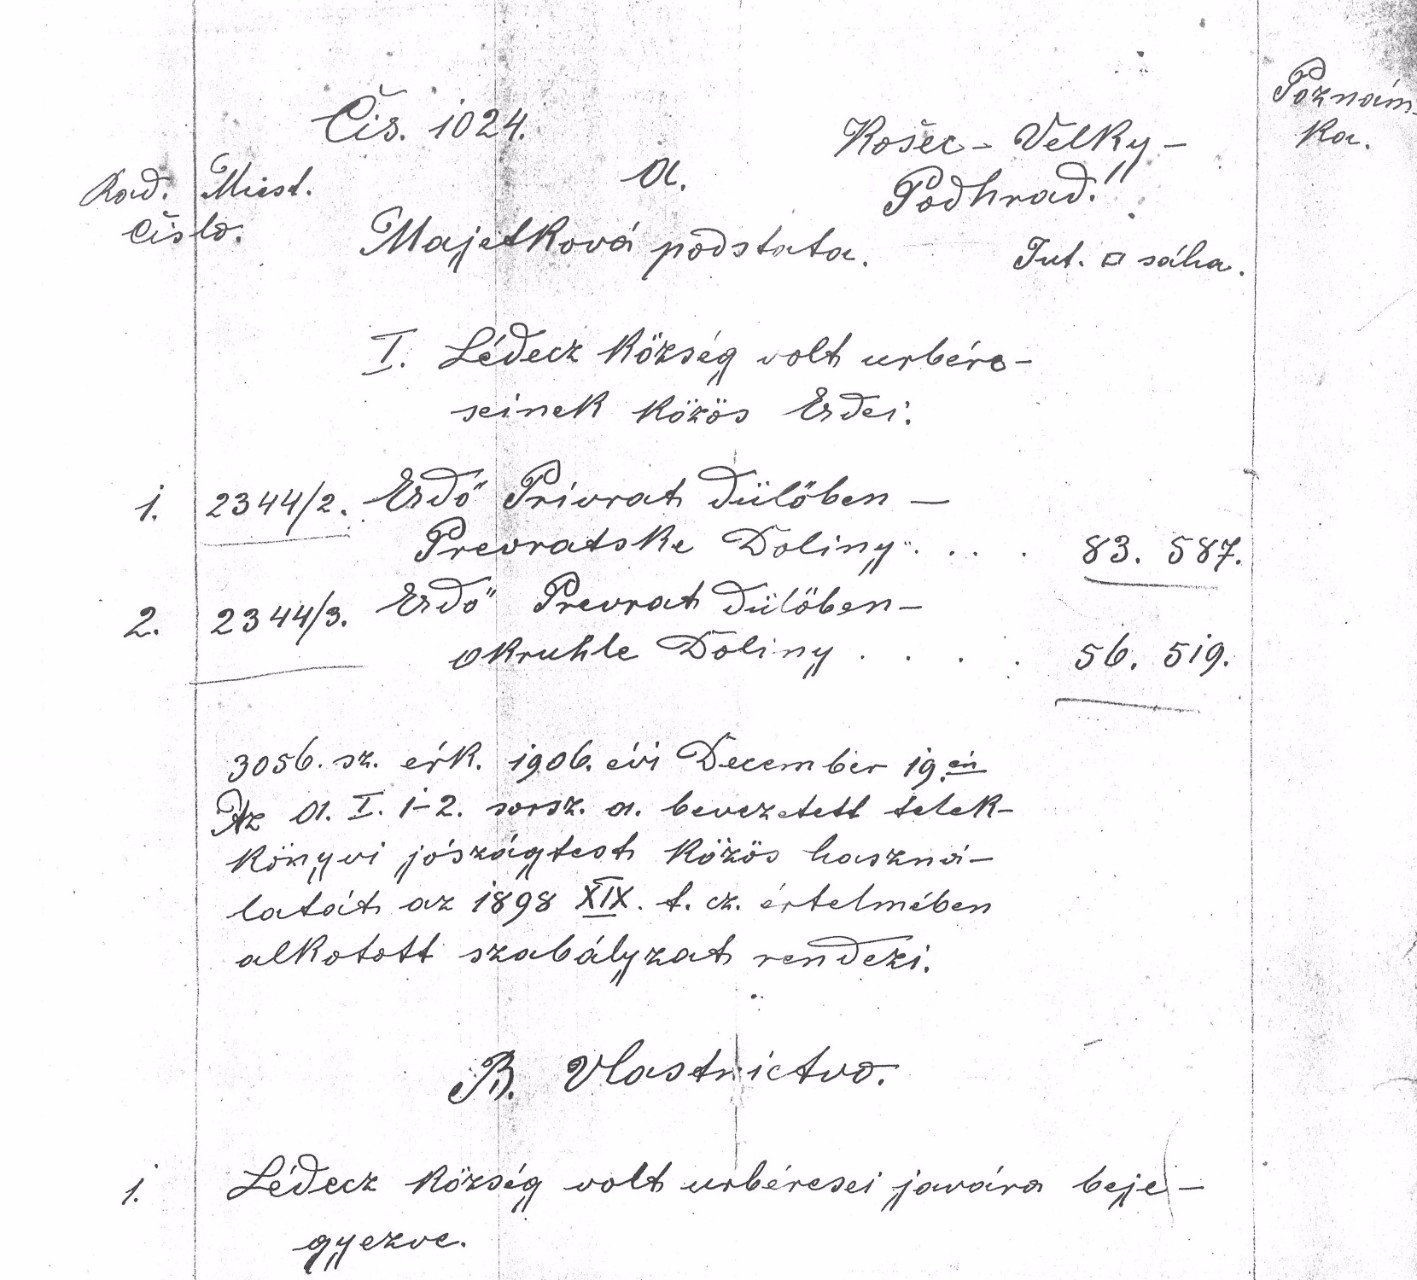 Čis. 1024.
Košec - Velky -
Podhrad.
Poznám-
ka.
Rad. Miest.
Čislo.
A.
Majetková podstata.
Jut. □ sáha.
I. Lédecz község volt urbére-
seinek közös Erdei.
1. 2344/2. Erdő Privrat dülőben —
Prevratske Doliny . . . 83. 587.
2. 2344/3. Erdő Prevrat dülőben —
okruhle Doliny . . . . 56. 519.
3056. sz. érk. 1906. évi December 19.én
Az A. I. 1-2. sorsz. a. bevezetett telek-
könyvi jószágtest közös haszná-
latát az 1898 XIX. t. cz. értelmében
alkotott szabályzat rendezi.
B. Vlastnictvo.
1. Lédecz község volt urbéresei javára beje-
gyezve.